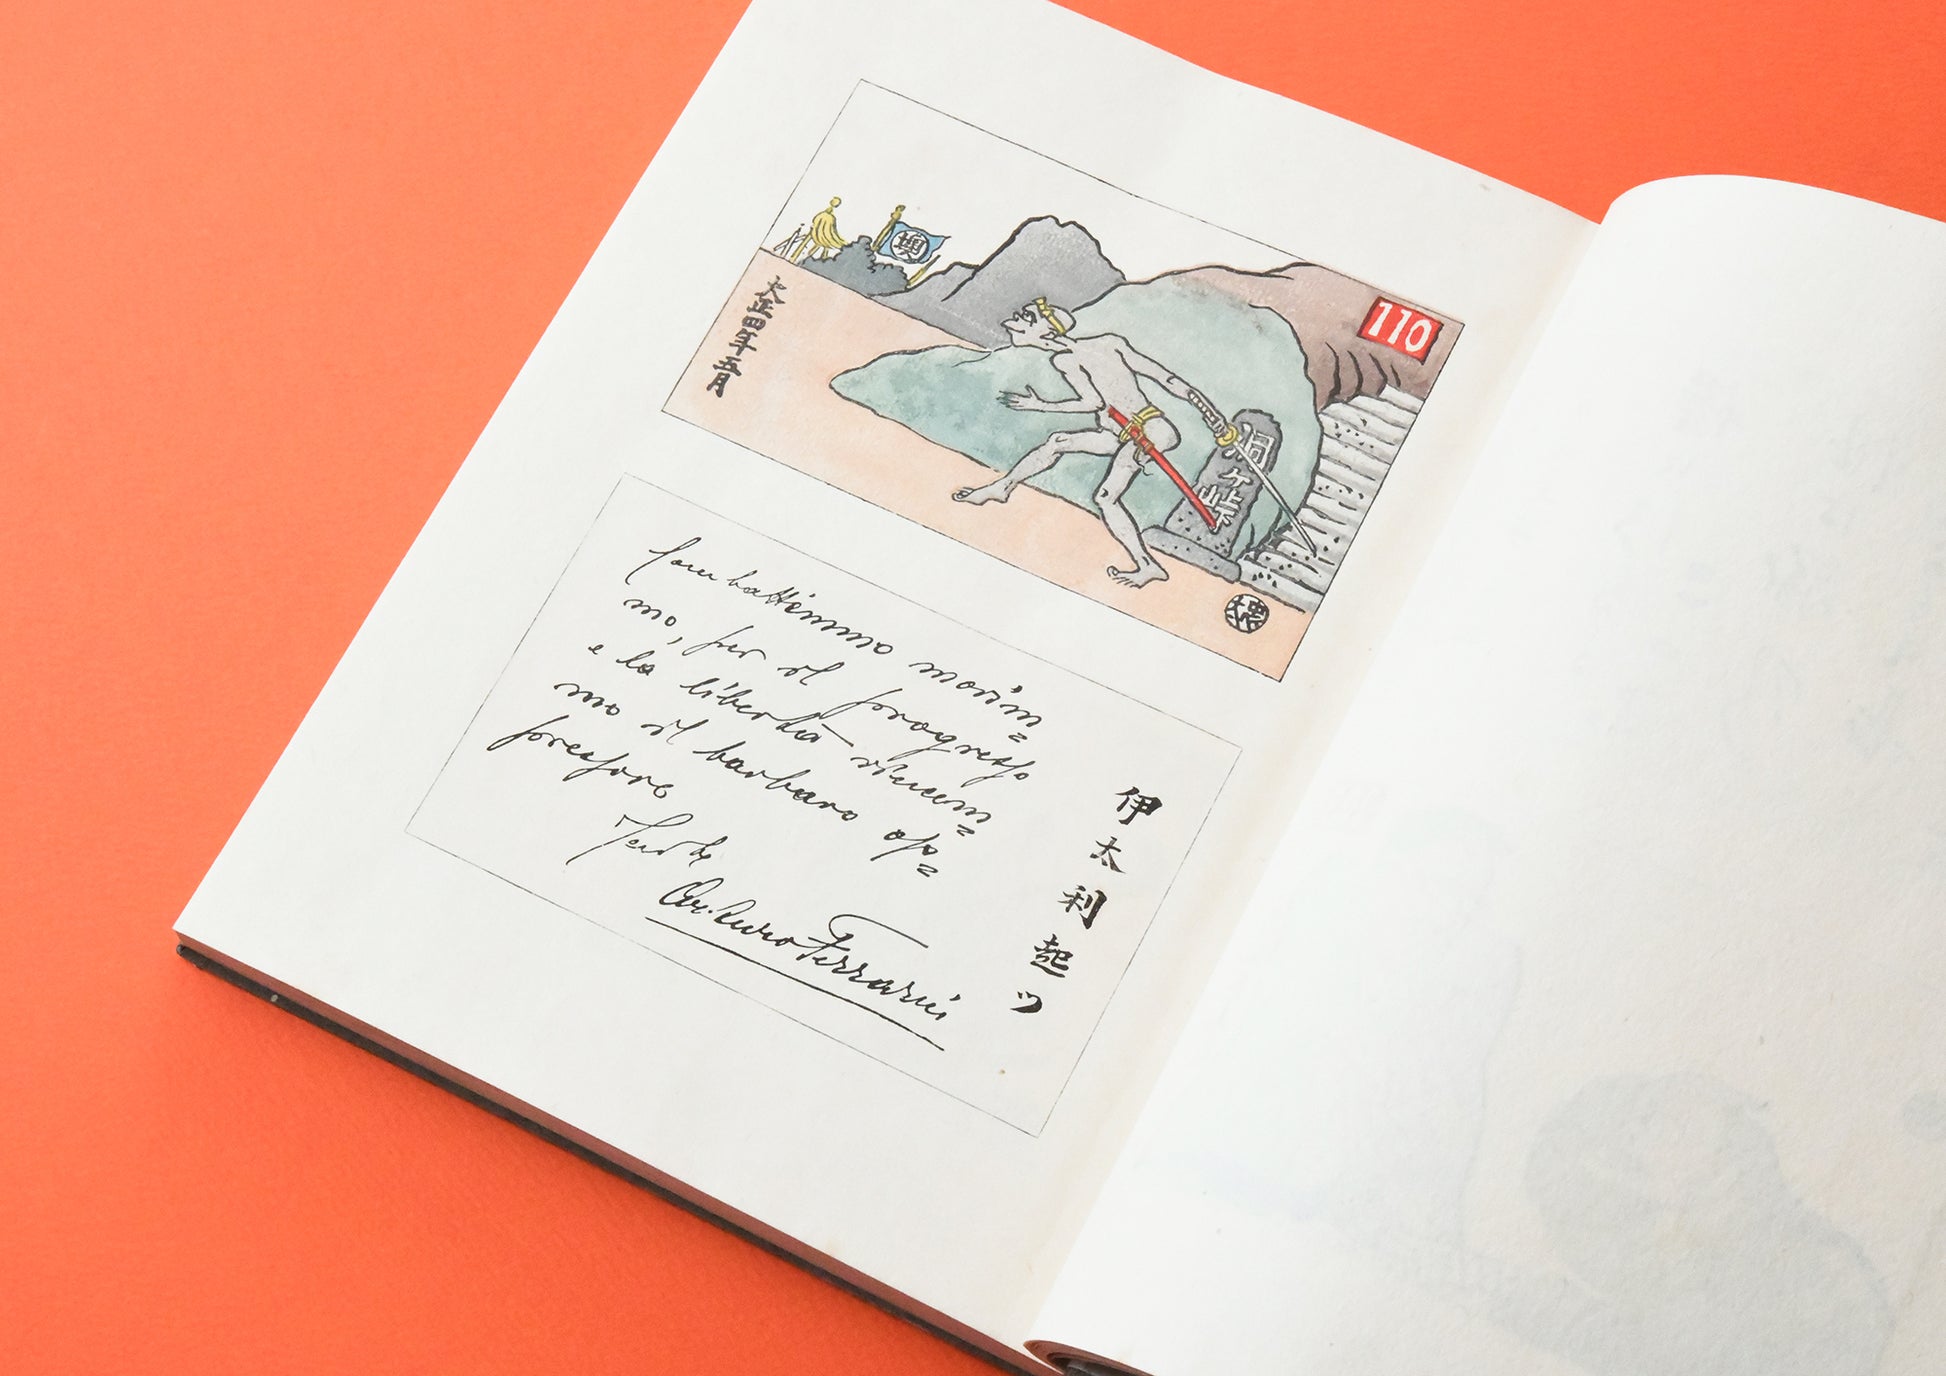 墺
110
大正四年五月
洞ヶ峠
Combattimmo morim=
mo, per il progresso
e la libertà vincem=
mo il barbaro op=
pressore
Ferrarin
伊太利起ツ